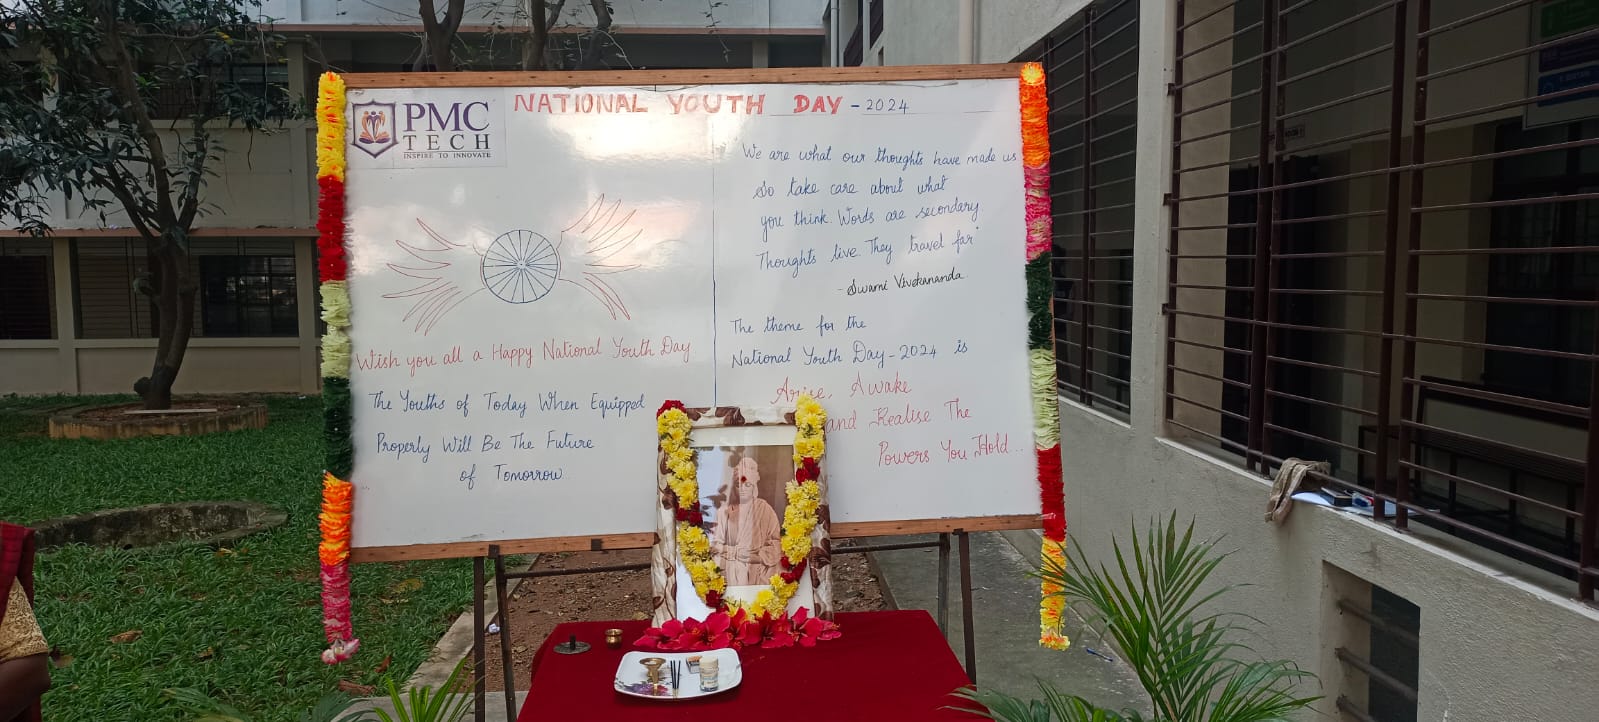 PMC
TECH
INSPIRE TO INNOVATE
NATIONAL YOUTH DAY - 2024
Wish you all a Happy National Youth Day
The Youths of Today When Equipped
Properly Will Be The Future
of Tomorrow
We are what our thoughts have made us
So take care about what
you think. Words are secondary.
Thoughts live. They travel far"
- Swami Vivekananda
The theme for the
National Youth Day - 2024 is
Arise, Awake
and Realise The
Powers You Hold...